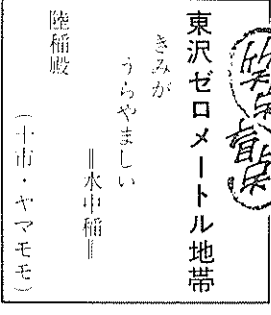 東沢ゼロメートル地帯
きみが
うらやましい
＝水中稲＝
陸稲殿
（十市・ヤマモモ）